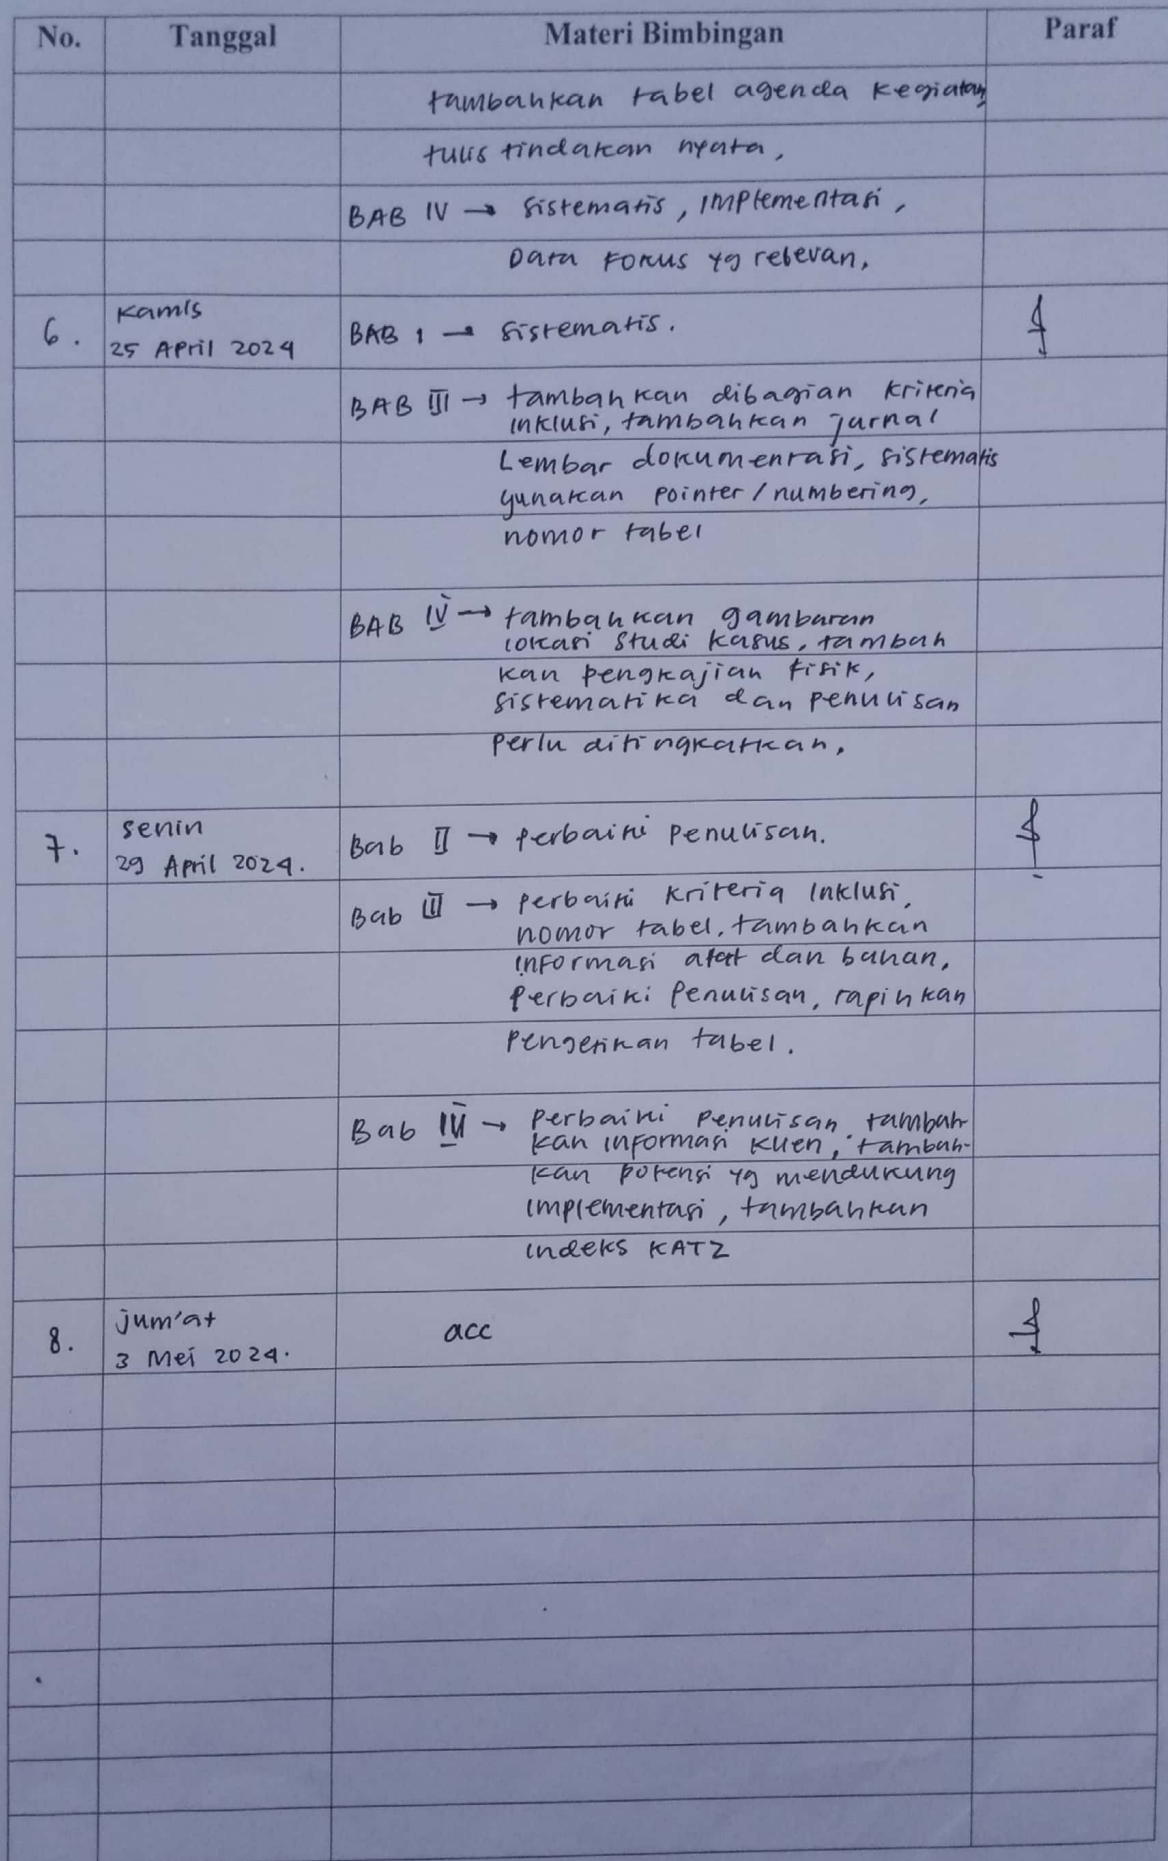 No. Tanggal Materi Bimbingan Paraf
tambahkan tabel agenda kegiatan,
tulis tindakan nyata,
BAB IV → sistematis, implementasi,
Data Fokus yg relevan,
6. Kamis
25 April 2024
BAB 1 → sistematis.
BAB III → tambahkan dibagian kriteria
inklusi, tambahkan jurnal
Lembar dokumentasi, sistematis
gunakan pointer/numbering,
nomor tabel
BAB IV → tambahkan gambaran
lokasi studi kasus, tambah
kan pengkajian fisik,
sistematika dan penulisan
perlu ditingkatkan,
7. senin
29 April 2024.
Bab II → perbaiki penulisan.
Bab III → perbaiki kriteria inklusi,
nomor tabel, tambahkan
informasi alat dan bahan,
perbaiki penulisan, rapihkan
pengetikan tabel.
Bab IV → perbaiki penulisan, tambah-
kan informasi klien, tambah-
kan potensi yg mendukung
implementasi, tambahkan
indeks KATZ
8. jum'at
3 Mei 2024.
acc